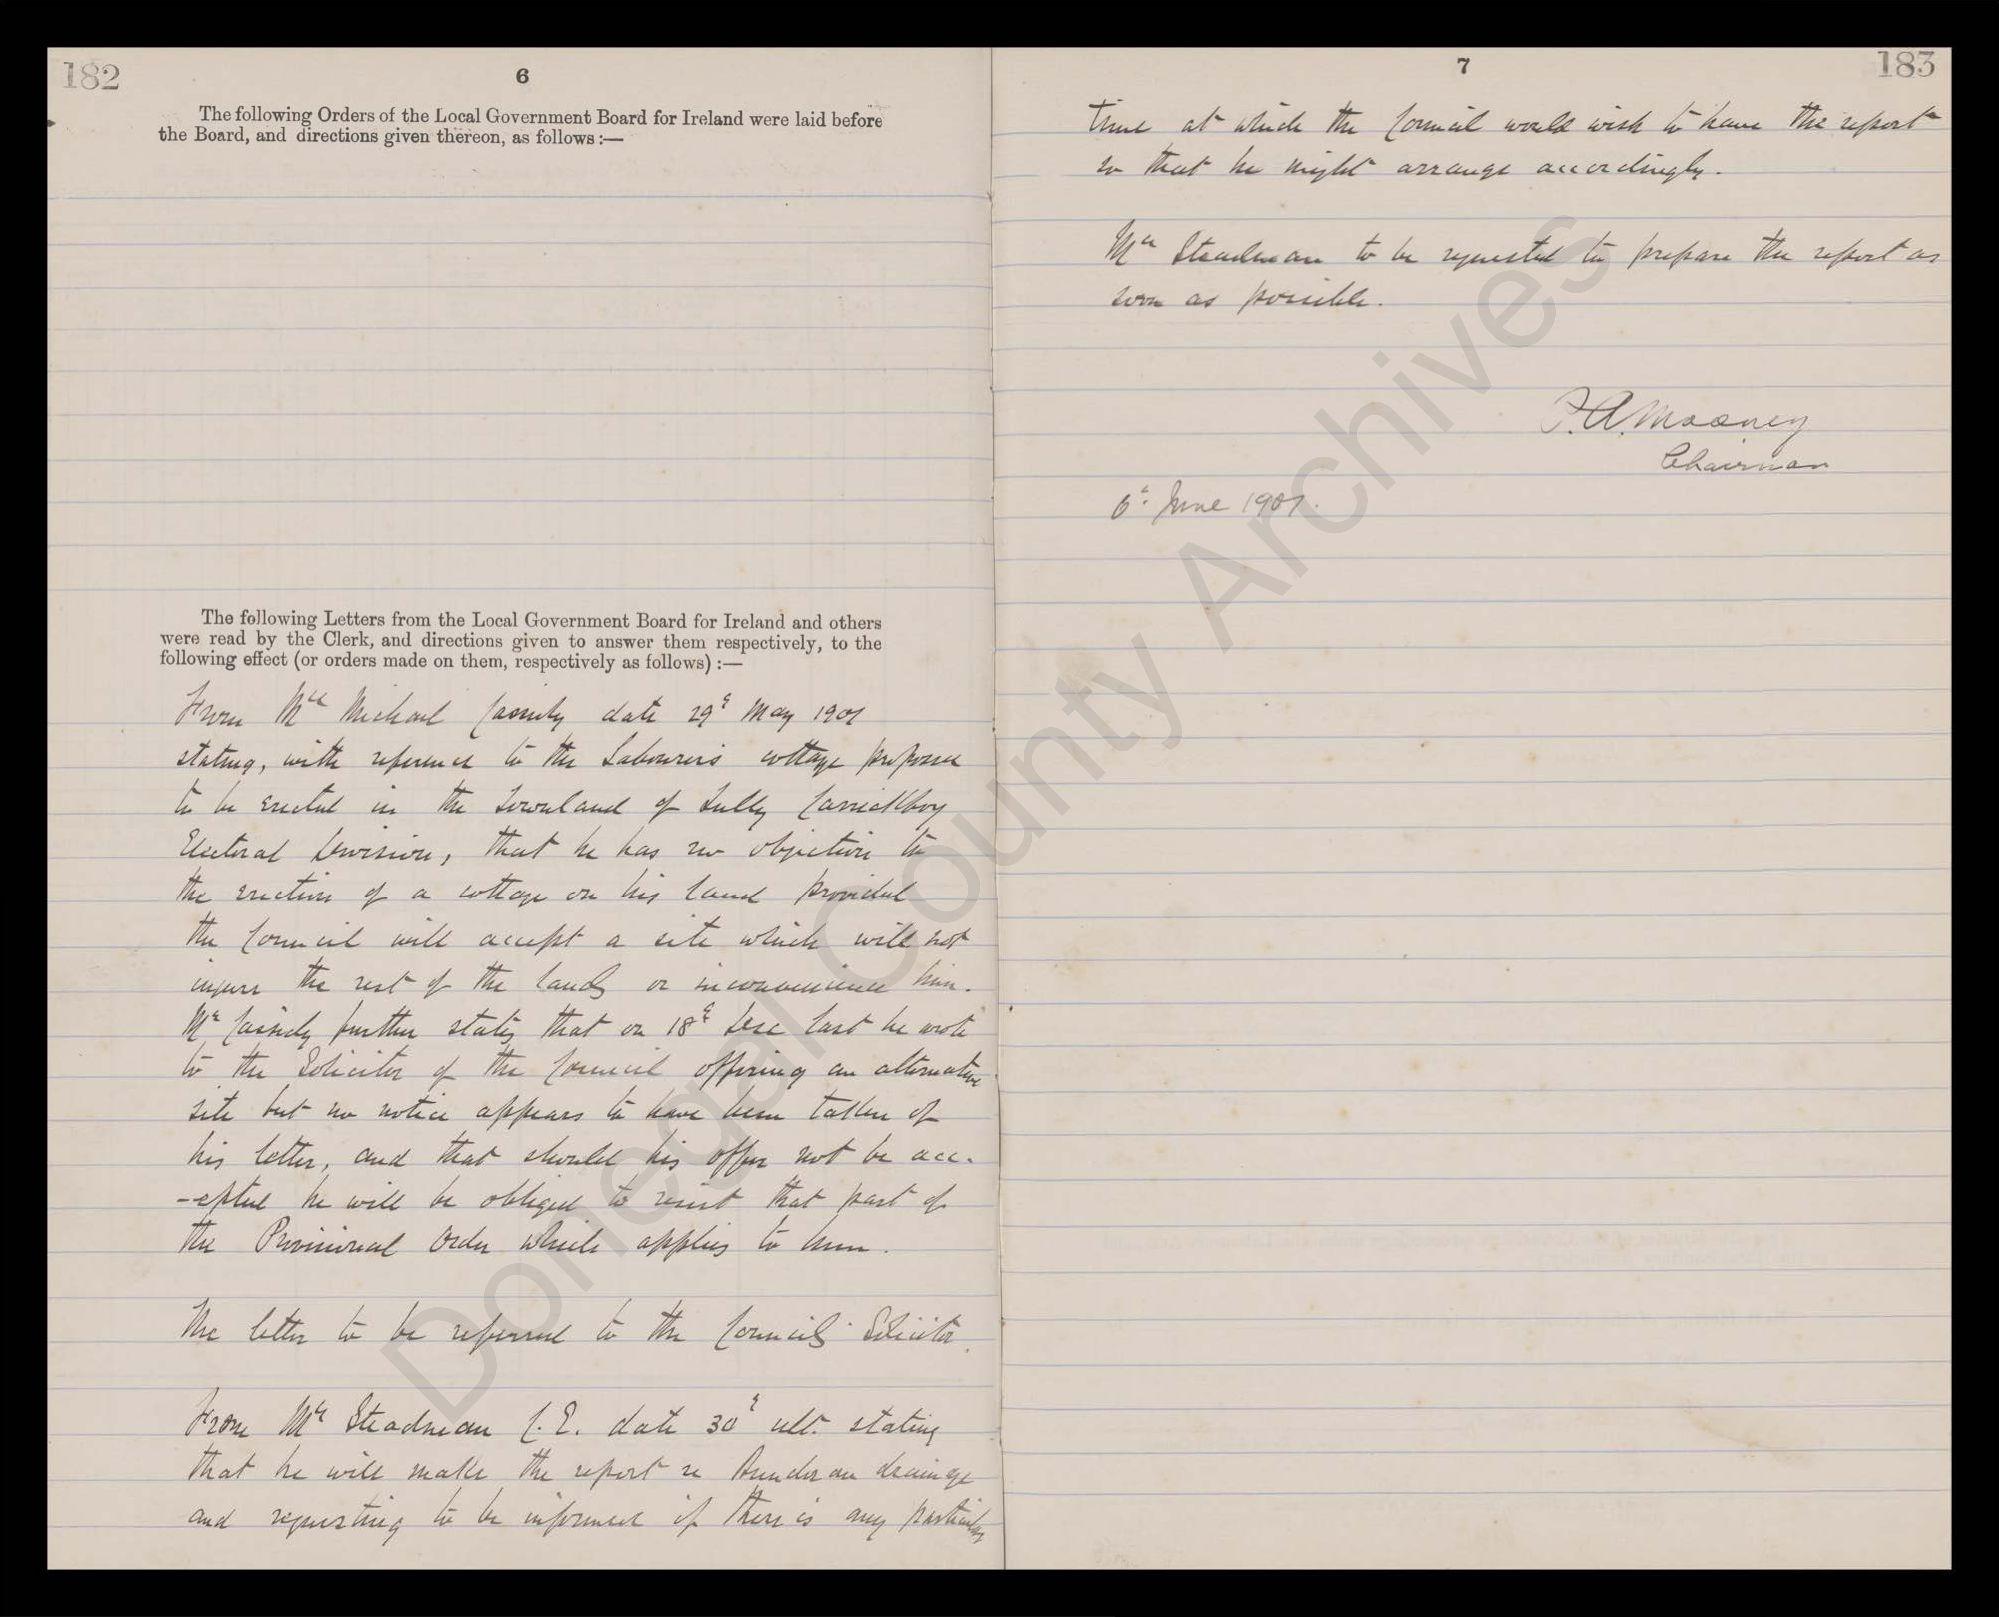 182
6
The following Orders of the Local Government Board for Ireland were laid before
the Board, and directions given thereon, as follows :—
The following Letters from the Local Government Board for Ireland and others
were read by the Clerk, and directions given to answer them respectively, to the
following effect (or orders made on them, respectively as follows) :—
From Mr Michael Cassidy date 29th May 1907
stating, with reference to the Labourers cottage proposed
to be erected in the Townland of Tully Carrickboy
Electoral Division, that he has no objection to
the erection of a cottage on his land provided
the Council will accept a site which will not
injure the rest of the lands or inconvenience him.
Mr Cassidy further states that on 18th Dec last he wrote
to the Solicitor of the Council offering an alternative
site but no notice appears to have been taken of
his letter, and that should his offer not be acc-
-epted he will be obliged to resist that part of
the Provisional Order which applies to him.
The letter to be referred to the Councils Solicitor.
From Mr Steadman C.E. date 30th ult. stating
that he will make the report re Bundoran drainage
and requesting to be informed if there is any particular
7
183
time at which the Council would wish to have the report
so that he might arrange accordingly.
Mr Steadman to be requested to prepare the report as
soon as possible.
P.A. Mooney
Chairman
6th June 1907.
Donegal County Archives